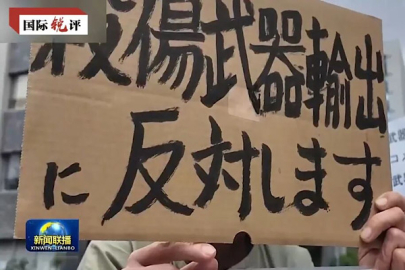 国际锐评
殺傷武器輸出
に反対します
新闻联播